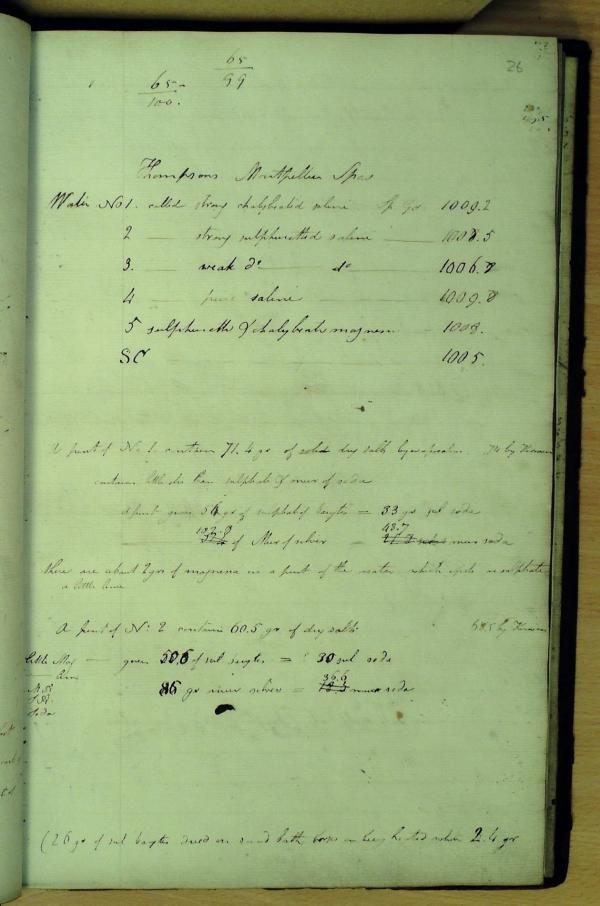 65
99
26
65
100.
Thompsons Montpellier Spas
Water No 1. called strong chalybeated saline Sp Gr 1009.2
2 — strong sulphuretted saline — 1008.5
3. — weak do — do 1006.8
4 — pure saline — 1009.8
5 sulphurettd & chalybeate magnesn — 1008.
SC 1005.
A pint of No 1. contain 71.4 gr of solid dry salts by evaporation 74 by Kirwan
contains little else than sulphate & mur of soda
a pint gives 54 gr of sulphate of barytes = 33 gr sul soda
102.8 48.7
of Mur of silver = mur soda
there are about 2 grs of magnesia in a pint of the water which exists as sulphate
a little lime
A pint of No 2 contain 60.5 gr of dry salts 68.5 by Kirwan
Little Mag — gives 50.6 of sul barytes = 30 sul soda
lime
36.6
86 gr mur silver = mur soda
M. S
Soda
(26 gr of sul barytes dried on sand bath on being heated 2.4 grs